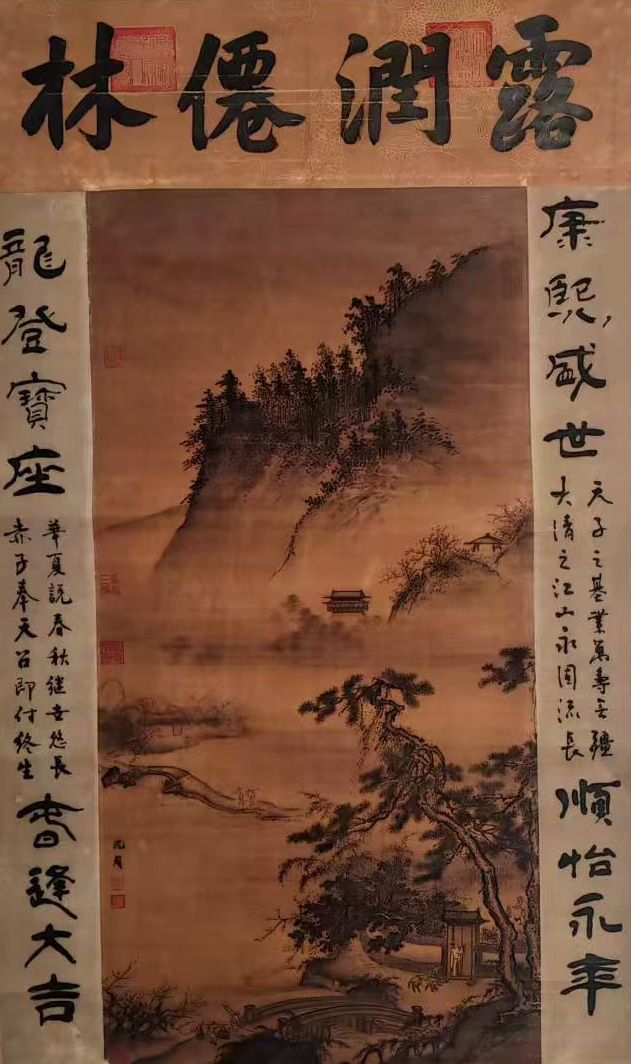 露潤僊林
康熙盛世
天子之基業萬壽无疆
大清之江山永固流長
順怡永年
龍登寶座
華夏説春秋继世悠長
赤子奉天召即付终生
春逢大吉
沈周